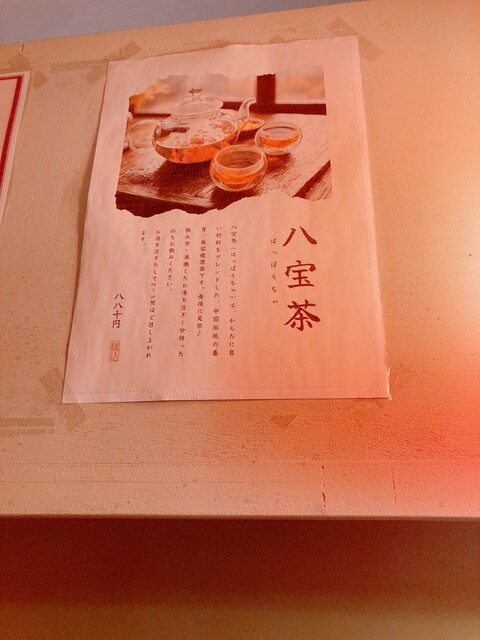 八宝茶
はっぽうちゃ
八宝茶(はっぽうちゃ)は、からだに良
い材料をブレンドした、中国伝統の養
身・美容健康茶です。食後に是非♪
飲み方…沸騰したお湯を注ぎ一分待った
のちお飲みください。
お湯を注ぎたして2~3煎ほど召し上がれ
ます。
八八十円
税込